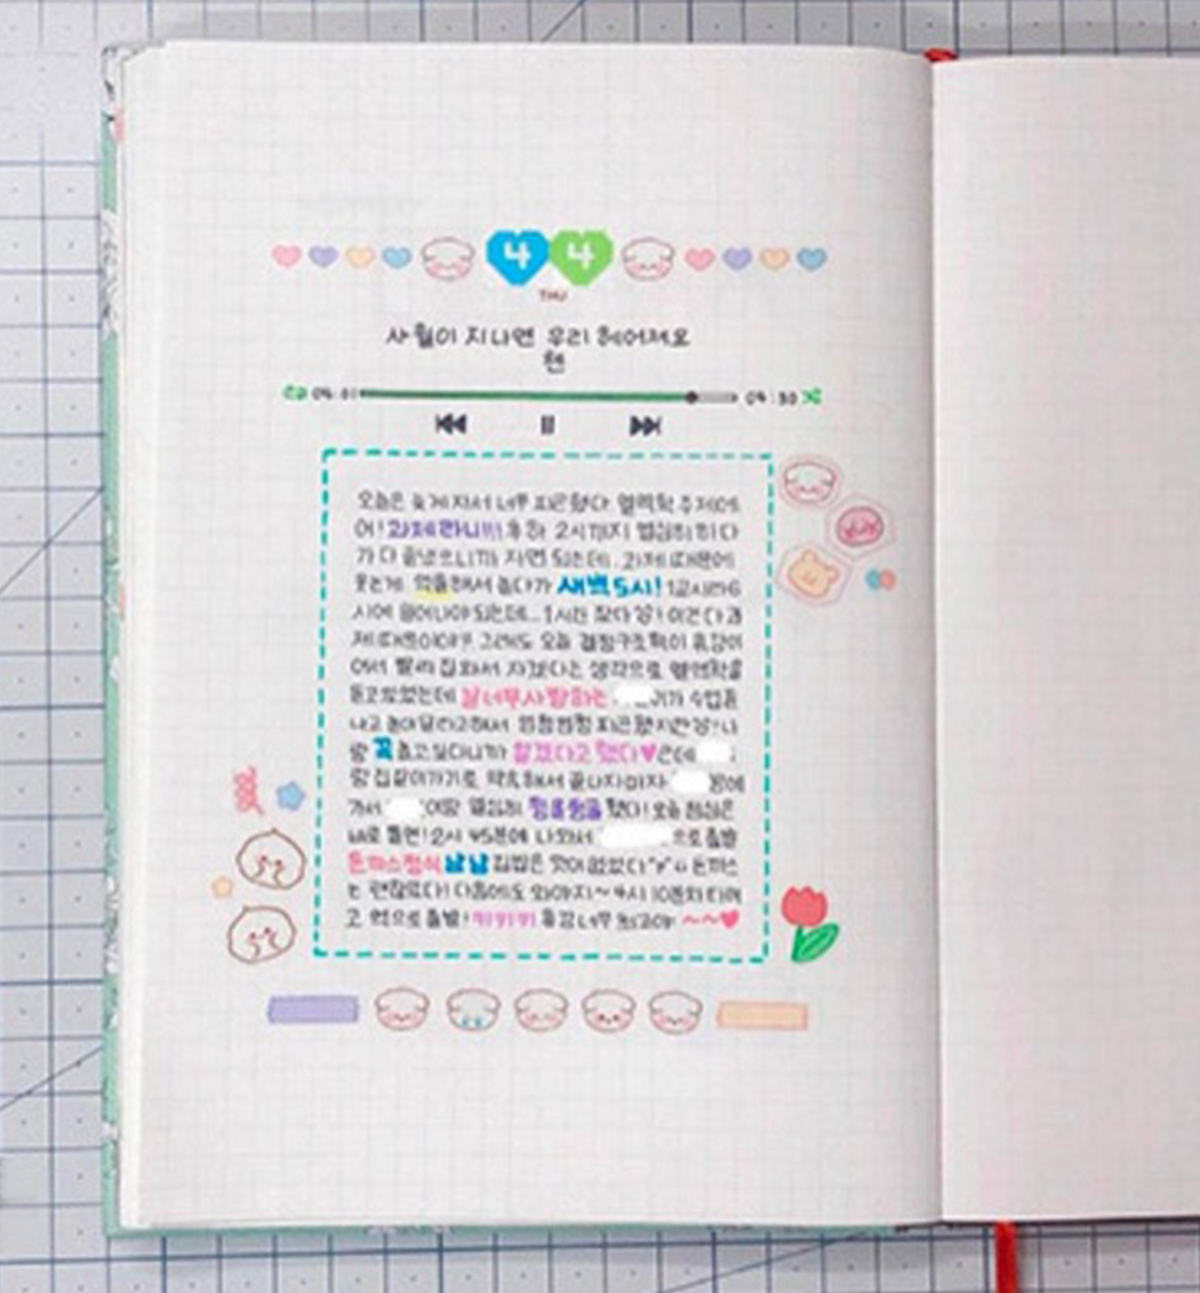 4 4
THU
사월이 지나면 우리 헤어져요
현
04:01 04:30
오늘은 늦게 자서 너무 피곤했다 열역학 주제에
어! 과제라니!!! 후하 2시까지 열심히 하다
가 다 끝냈으니까 자면 되는데.. 과제 때문에
못논게 억울해서 놀다가 새벽 5시! 12시간6
시에 일어나야 되는데... 1시간 잤다 강! 이건 다 과
제 때문이야!! 그래도 오늘 결정구조학이 휴강이
어서 빨리 집 와서 자겠다는 생각으로 열역학을
듣고 있었는데 날 너무 사랑하는 가 수업 끝
나고 놀아달라고 해서 엄청엄청 피곤했지만 강! 나
랑 꼭 놀고 싶다니까 알겠다고 했다♥ 근데
랑 집 같이 가기로 약속해서 끝나자마자 방에
가서 이랑 열심히 뒹굴뒹굴 했다! 오늘 점심은
바로 쫄면! 2시 45분에 나와서 으로 출발
돈까스정식 냠냠 김밥은 맛이 없었다 돈까스
는 괜찮았다! 다음에도 와야지~ 4시 10분차 타려
고 역으로 출발! 키키키 휴강 너무 최고야 ~~♥